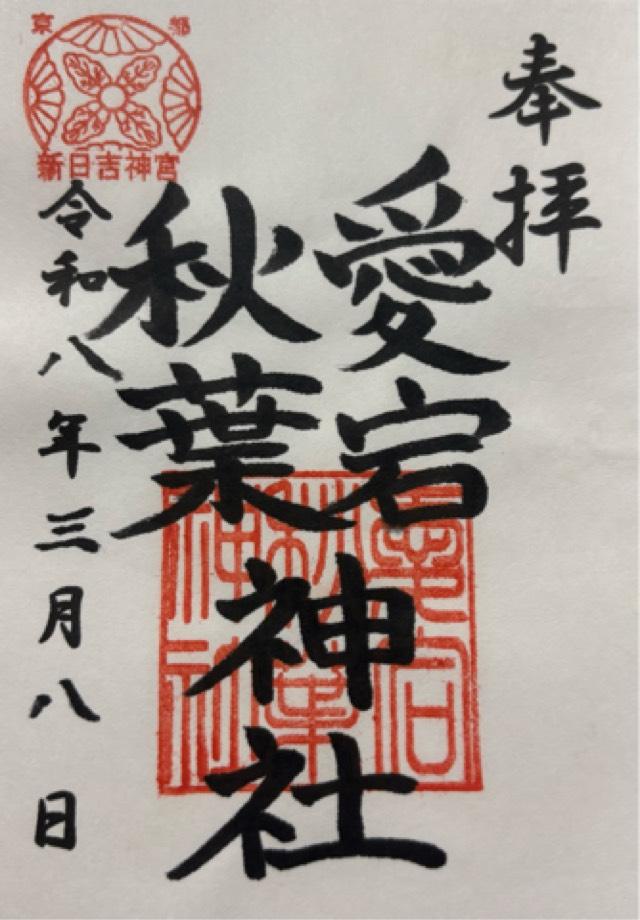 奉拝
愛宕
秋葉
神社
令和八年三月八日
京都
新日吉神宮
愛宕
秋葉
神社